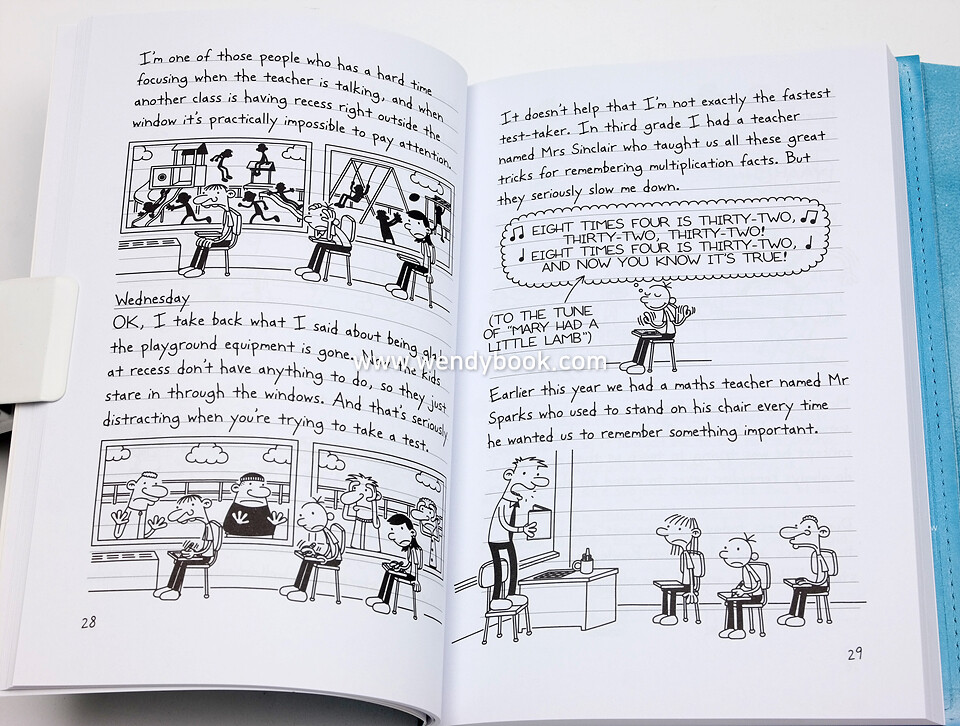 I'm one of those people who has a hard time
focusing when the teacher is talking, and when
another class is having recess right outside the
window it's practically impossible to pay attention.
Wednesday
OK, I take back what I said about being glad
the playground equipment is gone. Now the kids
at recess don't have anything to do, so they just
stare in through the windows. And that's seriously
distracting when you're trying to take a test.
28
It doesn't help that I'm not exactly the fastest
test-taker. In third grade I had a teacher
named Mrs Sinclair who taught us all these great
tricks for remembering multiplication facts. But
they seriously slow me down.
EIGHT TIMES FOUR IS THIRTY-TWO,
THIRTY-TWO, THIRTY-TWO!
EIGHT TIMES FOUR IS THIRTY-TWO,
AND NOW YOU KNOW IT'S TRUE!
(TO THE TUNE
OF "MARY HAD A
LITTLE LAMB")
www.wendybook.com
Earlier this year we had a maths teacher named Mr
Sparks who used to stand on his chair every time
he wanted us to remember something important.
29